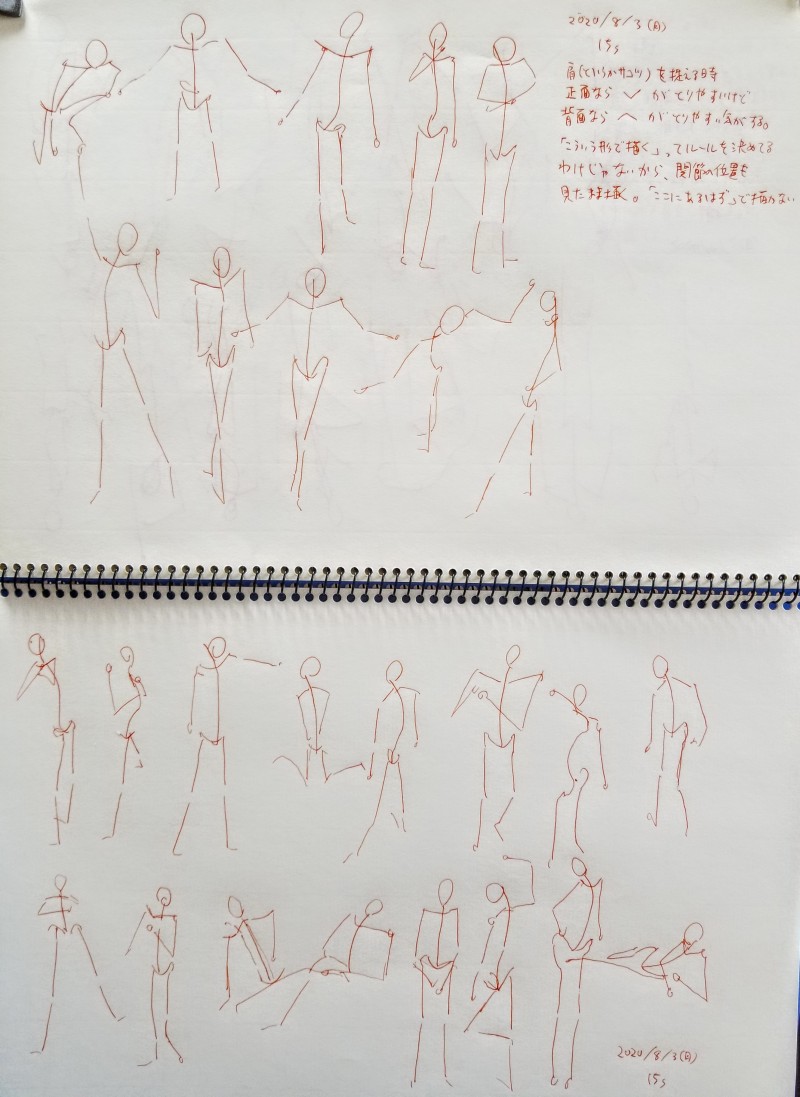 2020/8/3(月)
15s
肩(というかサコツ)を捉える時
正面なら ﹀ がとりやすいけど
背面なら ︿ がとりやすい気がする。
「こういう形で描く」ってルールを決めてる
わけじゃないから、関節の位置を
見た様描く。「ここにあるはず」で描かない
2020/8/3(月)
15s